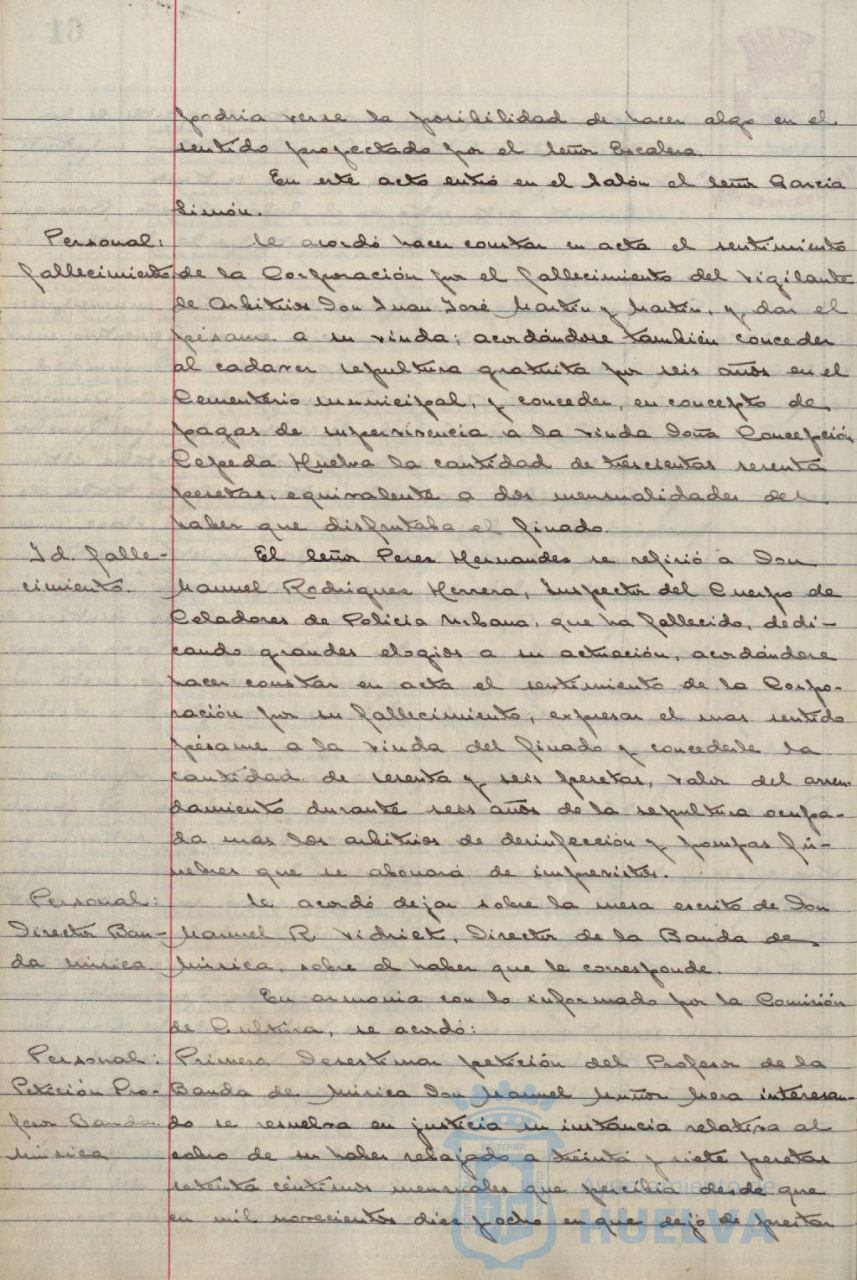 podria verse la posibilidad de hacer algo en el
sentido proyectado por el Señor Escalera.
En este acto entró en el Salón el Señor Garcia
Simón.
Personal: Se acordó hacer constar en acta el sentimiento
fallecimiento de la Corporación por el fallecimiento del Vigilante
de Arbitrios Don Juan José Martin y Martin, y dar el
pésame a su viuda; acordándose también conceder
al cadaver sepultura gratuita por seis años en el
Cementerio municipal, y conceder, en concepto de
pagas de supervivencia a la viuda Doña Concepción
Cepeda Huelva la cantidad de trescientas sesenta
pesetas, equivalente a dos mensualidades del
haber que disfrutaba el finado.
Id. falle- El Señor Perez Hernandez se refirió a Don
cimiento. Manuel Rodriguez Herrera, Inspector del Cuerpo de
Celadores de Policia Urbana, que ha fallecido, dedi-
cando grandes elogios a su actuación, acordándose
hacer constar en acta el sentimiento de la Corpo-
ración por su fallecimiento; expresar el mas sentido
pésame a la viuda del finado y concederle la
cantidad de sesenta y seis pesetas, valor del arren-
damiento durante seis años de la sepultura ocupa-
da mas los arbitrios de desinfección y pompas fú-
nebres que se abonará de imprevistos.
Personal: Se acordó dejar sobre la mesa escrito de Don
Director Ban- Manuel R. Vidriet, Director de la Banda de
da Música. Música, sobre el haber que le corresponde.
En armonia con lo informado por la Comisión
de Cultura, se acordó:
Personal: Primera. Desestimar petición del Profesor de la
Petición Pro- Banda de Música Don Manuel Muñoz Mora interesan-
fesor Banda do se resuelva en justicia su instancia relativa al
Música cobro de su haber rebajado a treinta y siete pesetas
setenta céntimos mensuales que percibia desde que
en mil novecientos diez y ocho en que dejó de prestar
Ayuntamiento de
HUELVA